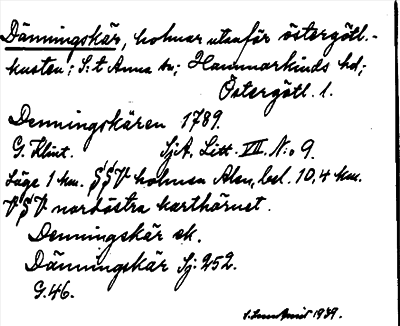 Dänningskär, holmar utanför östergötl.-
kusten; S:t Anna sn; Hammarkinds hd;
Östergötl. l.
Denningskären 1789.
G. Klint. SjA, Litt. VII. N:o 9.
Läge 1 km. SSV holmen Alen, bel. 10,4 km.
VSV nordöstra karthörnet.
Denningskär ek.
Dänningskär Sj: 252.
G.46.
1939.